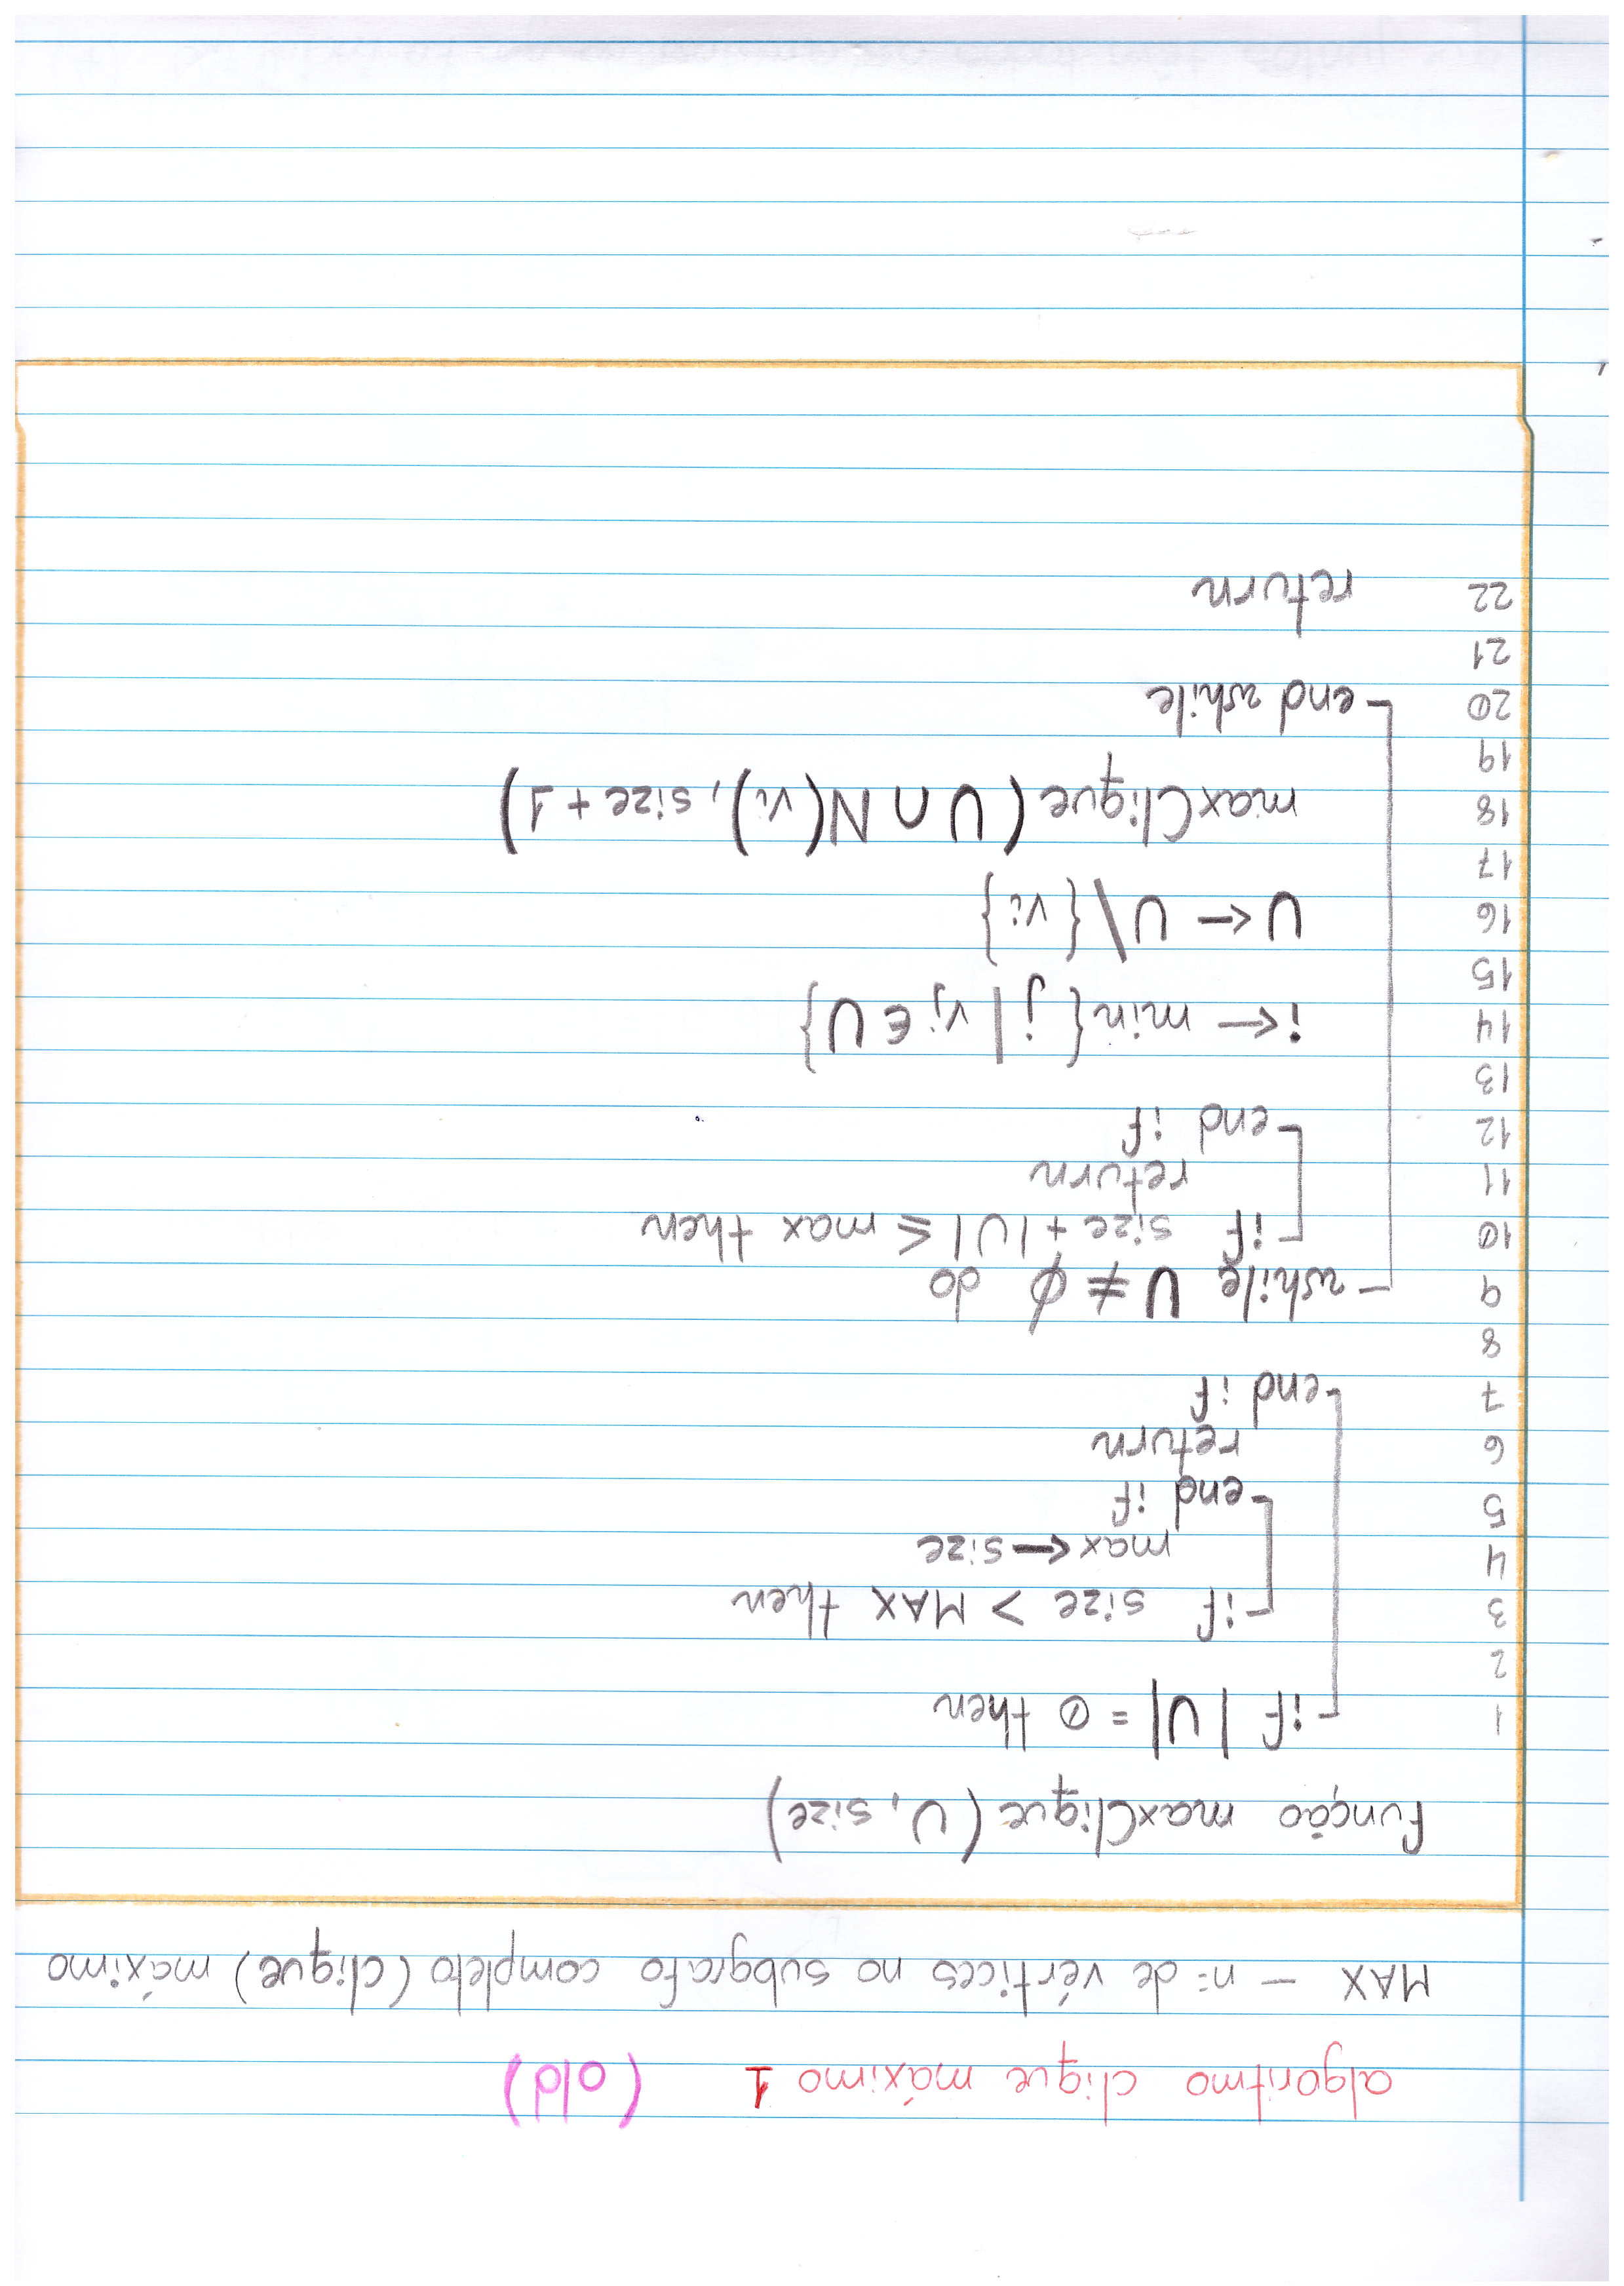 algoritmo clique máximo 1 (old)
MAX – nº de vértices no subgrafo completo (clique) máximo
função maxClique (U, size)
1 if |U| = 0 then
2
3 if size > MAX then
4 max ← size
5 end if
6 return
7 end if
8
9 while U ≠ ∅ do
10 if size + |U| ≤ max then
11 return
12 end if
13
14 i ← min{ j | vj ∈ U}
15
16 U ← U \ { vi }
17
18 maxClique (U ∩ N(vi), size + 1)
19
20 end while
21
22 return